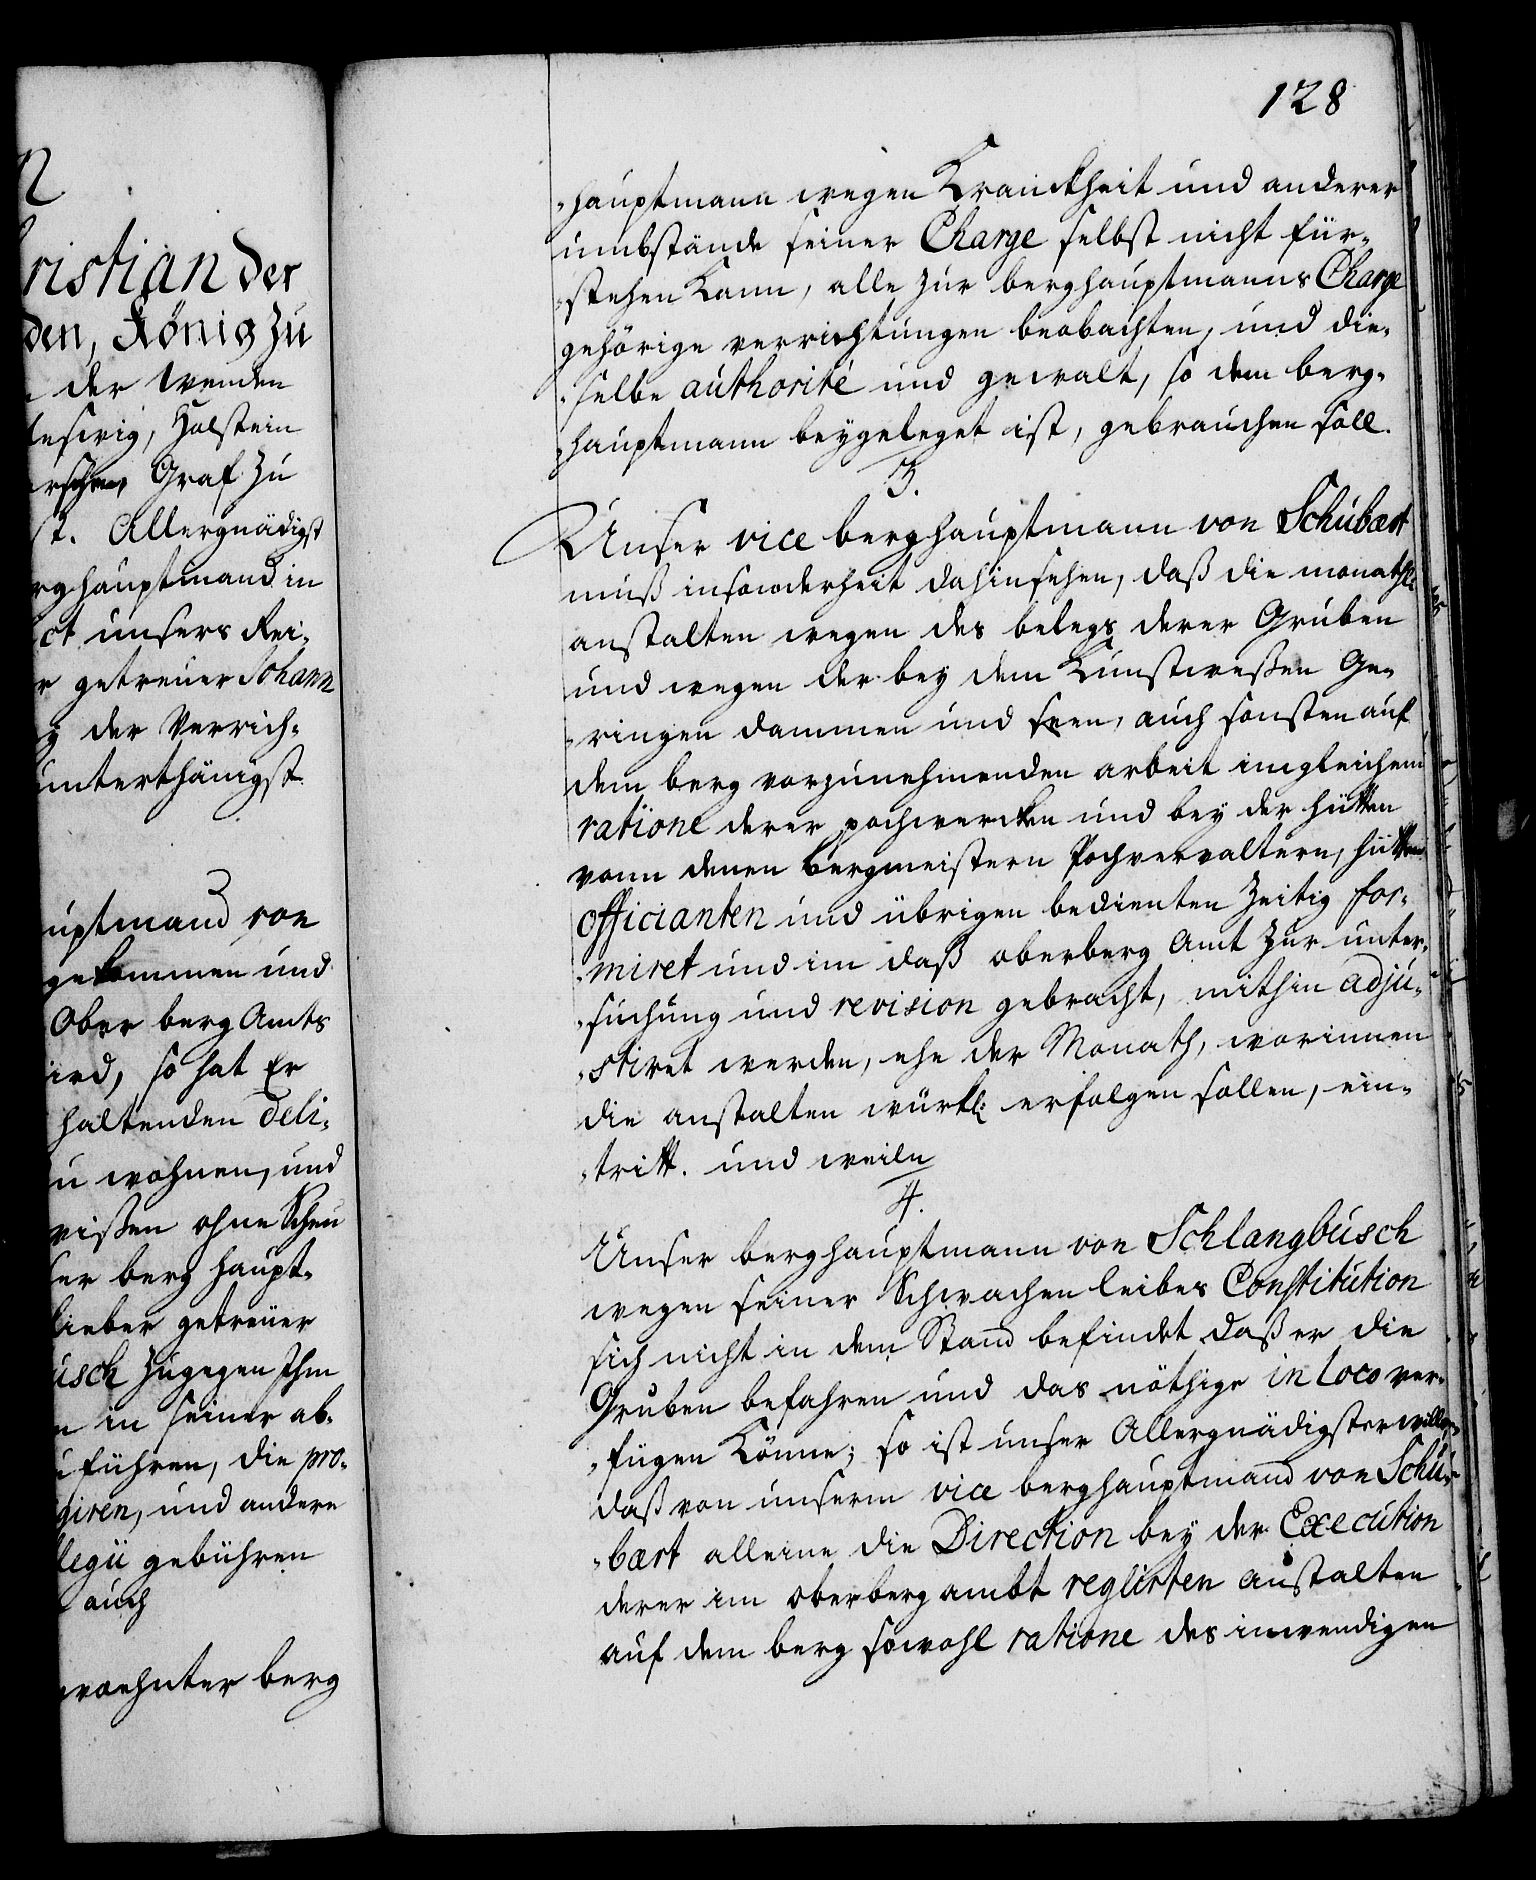 ristian der
den, König zu
der Wenden
leswig, Holstein
Graf zu
Allergnädigst
rghauptmand in
ct unsers Rei-
r getreuer Johann
g der Verrich-
unterthänigst
uptmand von
gekommen und
Ober berg Amts
ird, so hat Er
haltenden Deli-
u wohnen, und
wißen ohne Scheu
ser berg haupt-
lieber getreuer
usch zugegen Ihm
n in seiner ab-
u führen, die pro-
giren, und andere
legii gebühren
auch
woehnter berg
128
-hauptmann wegen Kranckheit und anderer
umbstände seiner Charge selbst nicht für-
-stehen Kann, alle zur berghauptmanns Charge
gehörige verrichtungen beobachten, und die-
-selbe authorité und gewalt, so dem berg-
-hauptmann beygeleget ist, gebrauchen soll.
3.
Unser vice berghauptmann von Schubært
muß insonderheit dahinsehen, daß die monathl:
anstalten wegen des belegs derer Gruben
und wegen der bey dem Kunstweßen Ge-
-ringen dammen und seen, auch sonsten auf
dem berg vorzunehmenden arbeit imgleichen
ratione derer pochwercken und bey der hütten
vonn denen bergmeistern Pochverwaltern, hütten
officianten und übrigen bedienten Zeitig for-
-miret und im daß oberberg Amt zur unter-
-suchung und revision gebracht, mithin adju-
-stiret werden, ehe der Monath, worinnen
die anstalten würkl: erfolgen sollen, ein-
-tritt. und weiln
4.
Unser berghauptmann von Schlangbusch
wegen seiner Schwachen leibes Constitution
sich nicht in dem Stand befindet daß er die
Gruben befahren und das nöthige in loco ver-
-fügen Könne; so ist unser Allergnädigster willen
daß von unserm vice berghauptmand von Schu-
-bært alleine die Direction bey der Execution
derer im oberberg ambt reglirten anstalten
auf dem berg sowohl ratione des inwendigen